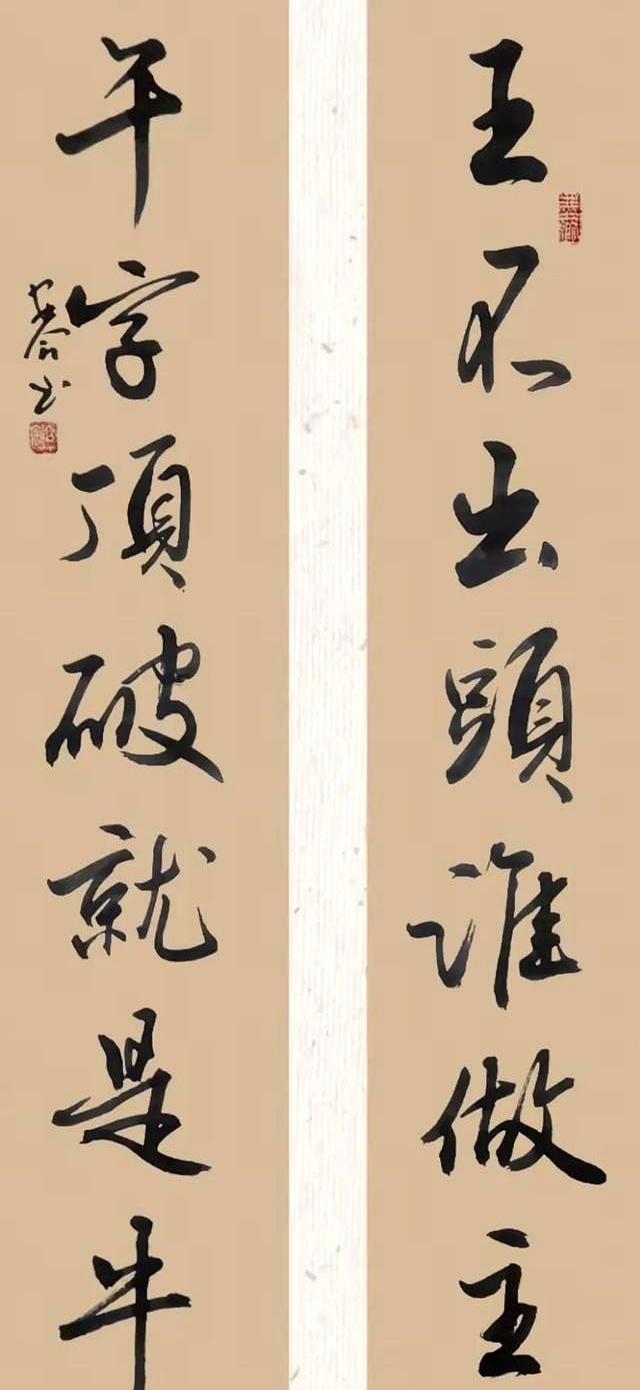 王不出頭誰做主
午字頂破就是牛